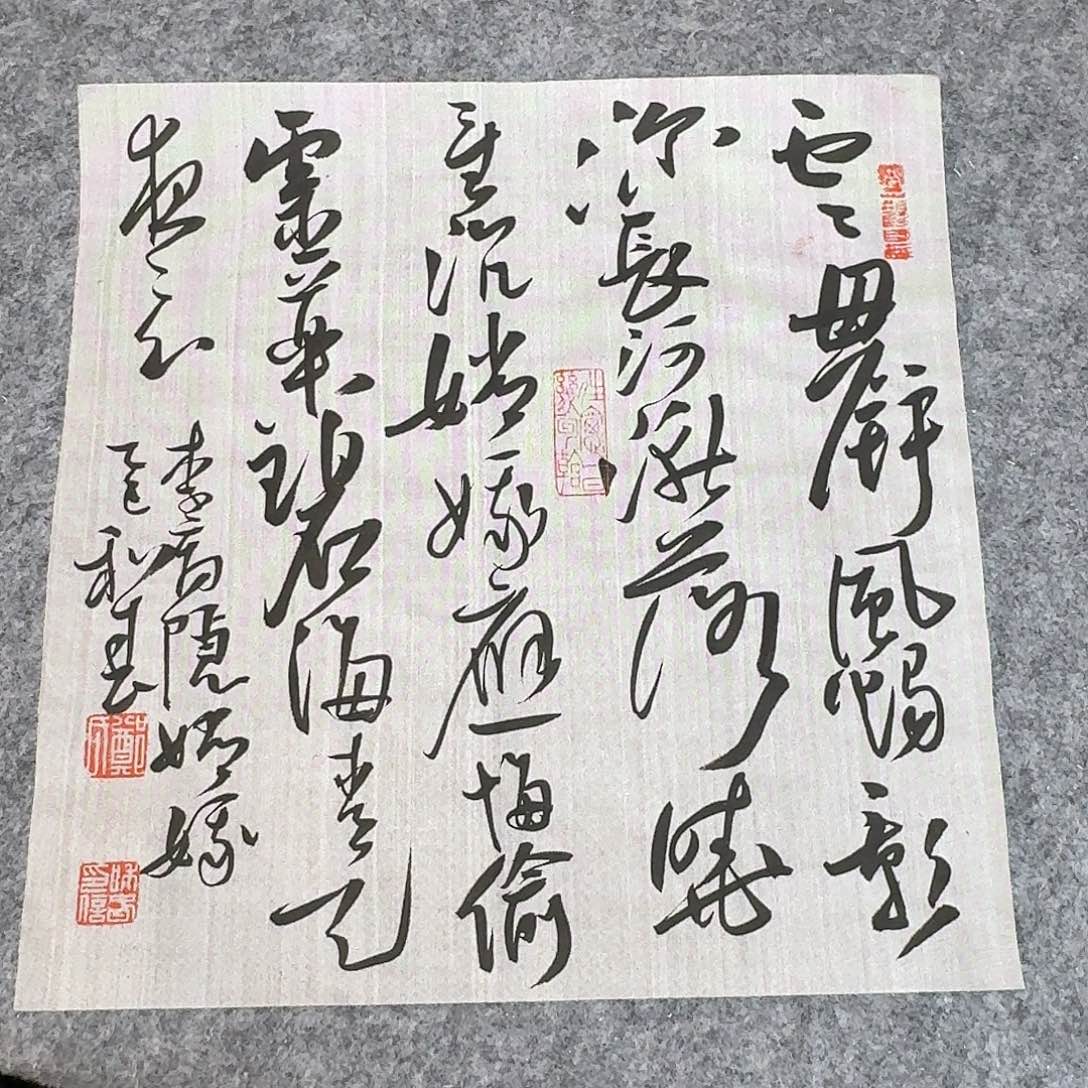 雲母屏風燭影
深長河漸落曉
星沉嫦娥應悔偷
靈藥碧海青天
夜々心
李商隱嫦娥
乙巳書